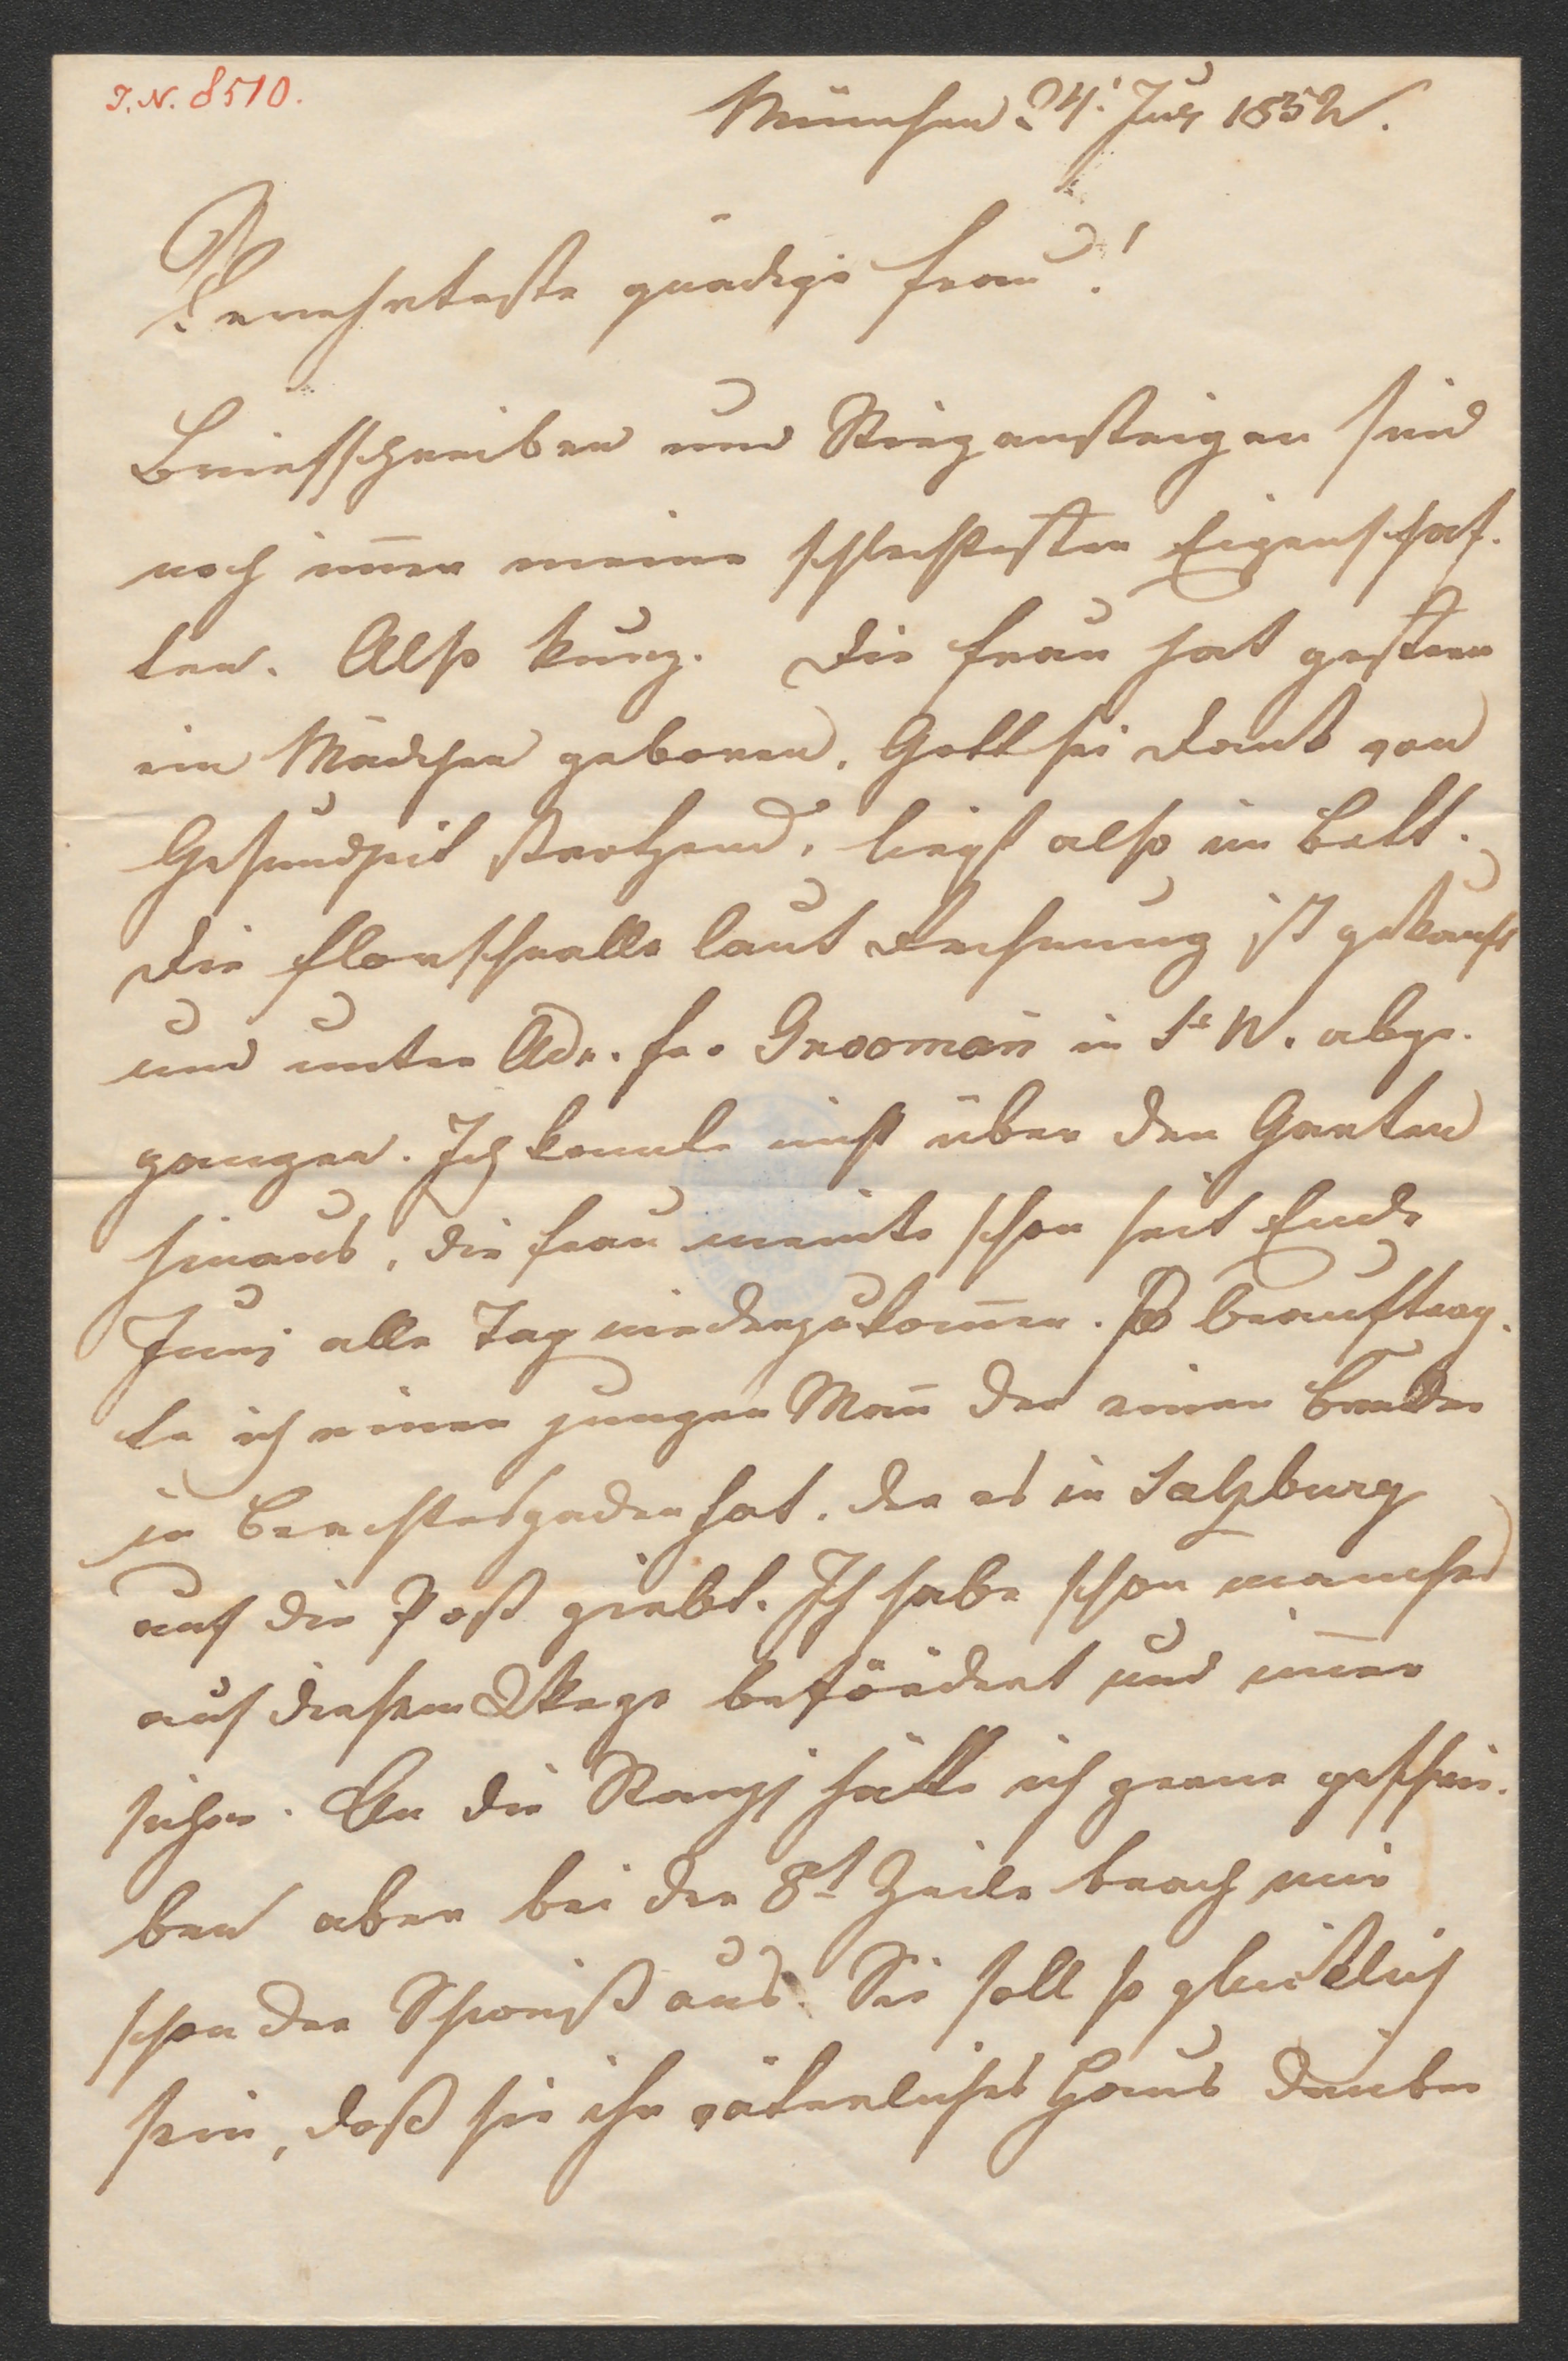 J. N. 8510.
München 24. July 1852.
Verehrteste gnädige Frau!
Briefschreiben und Stiegensteigen sind
noch im̅er meine schlechtesten Eigenschaf-
ten. Also kurz. Die Frau hat gestern
ein Mädchen geboren, Gott sei Dank von
Gesundheit strotzend, liegt also im Bett.
Die laut Rechnung ist gekauft
und unter Adr. Fr. in St W. abge-
gangen. Ich konnte nicht über den Garten
hinaus, die Frau meinte schon seit Ende
Juni alle Tag niederzukom̅en. So beauftrag-
te ich einen jungen Man̅ der einen Bruder
in Berchtesgaden hat, der es in Salzburg
auf die Post giebt. Ich habe schon manches
auf diesem Wege befördert und im̅er
sicher. An die hätte ich gerne geschrie-
ben aber bei der 8t Zeile brach mir
schon der Schweiß aus. Sie soll so glücklich
sein, daß sie ihr väterliches Haus darüber